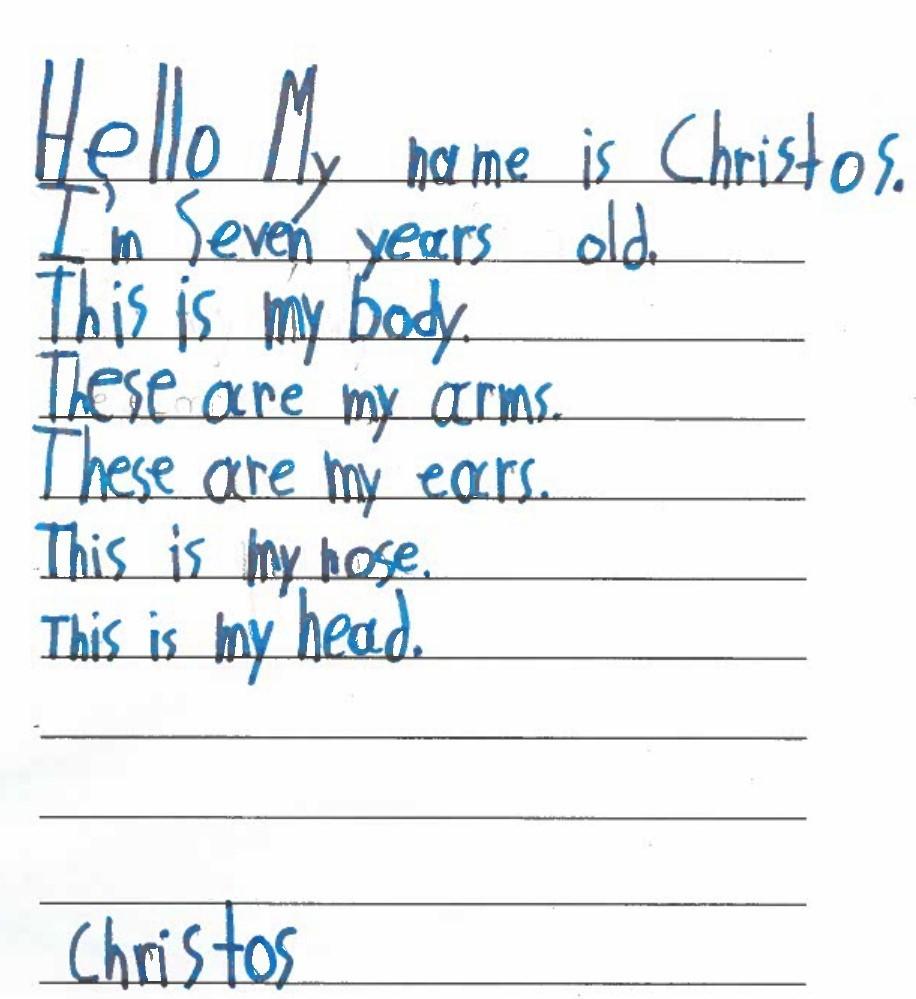 Hello My name is Christos.
I'm Seven years old.
This is my body.
These are my arms.
These are my ears.
This is my nose.
This is my head.
Christos